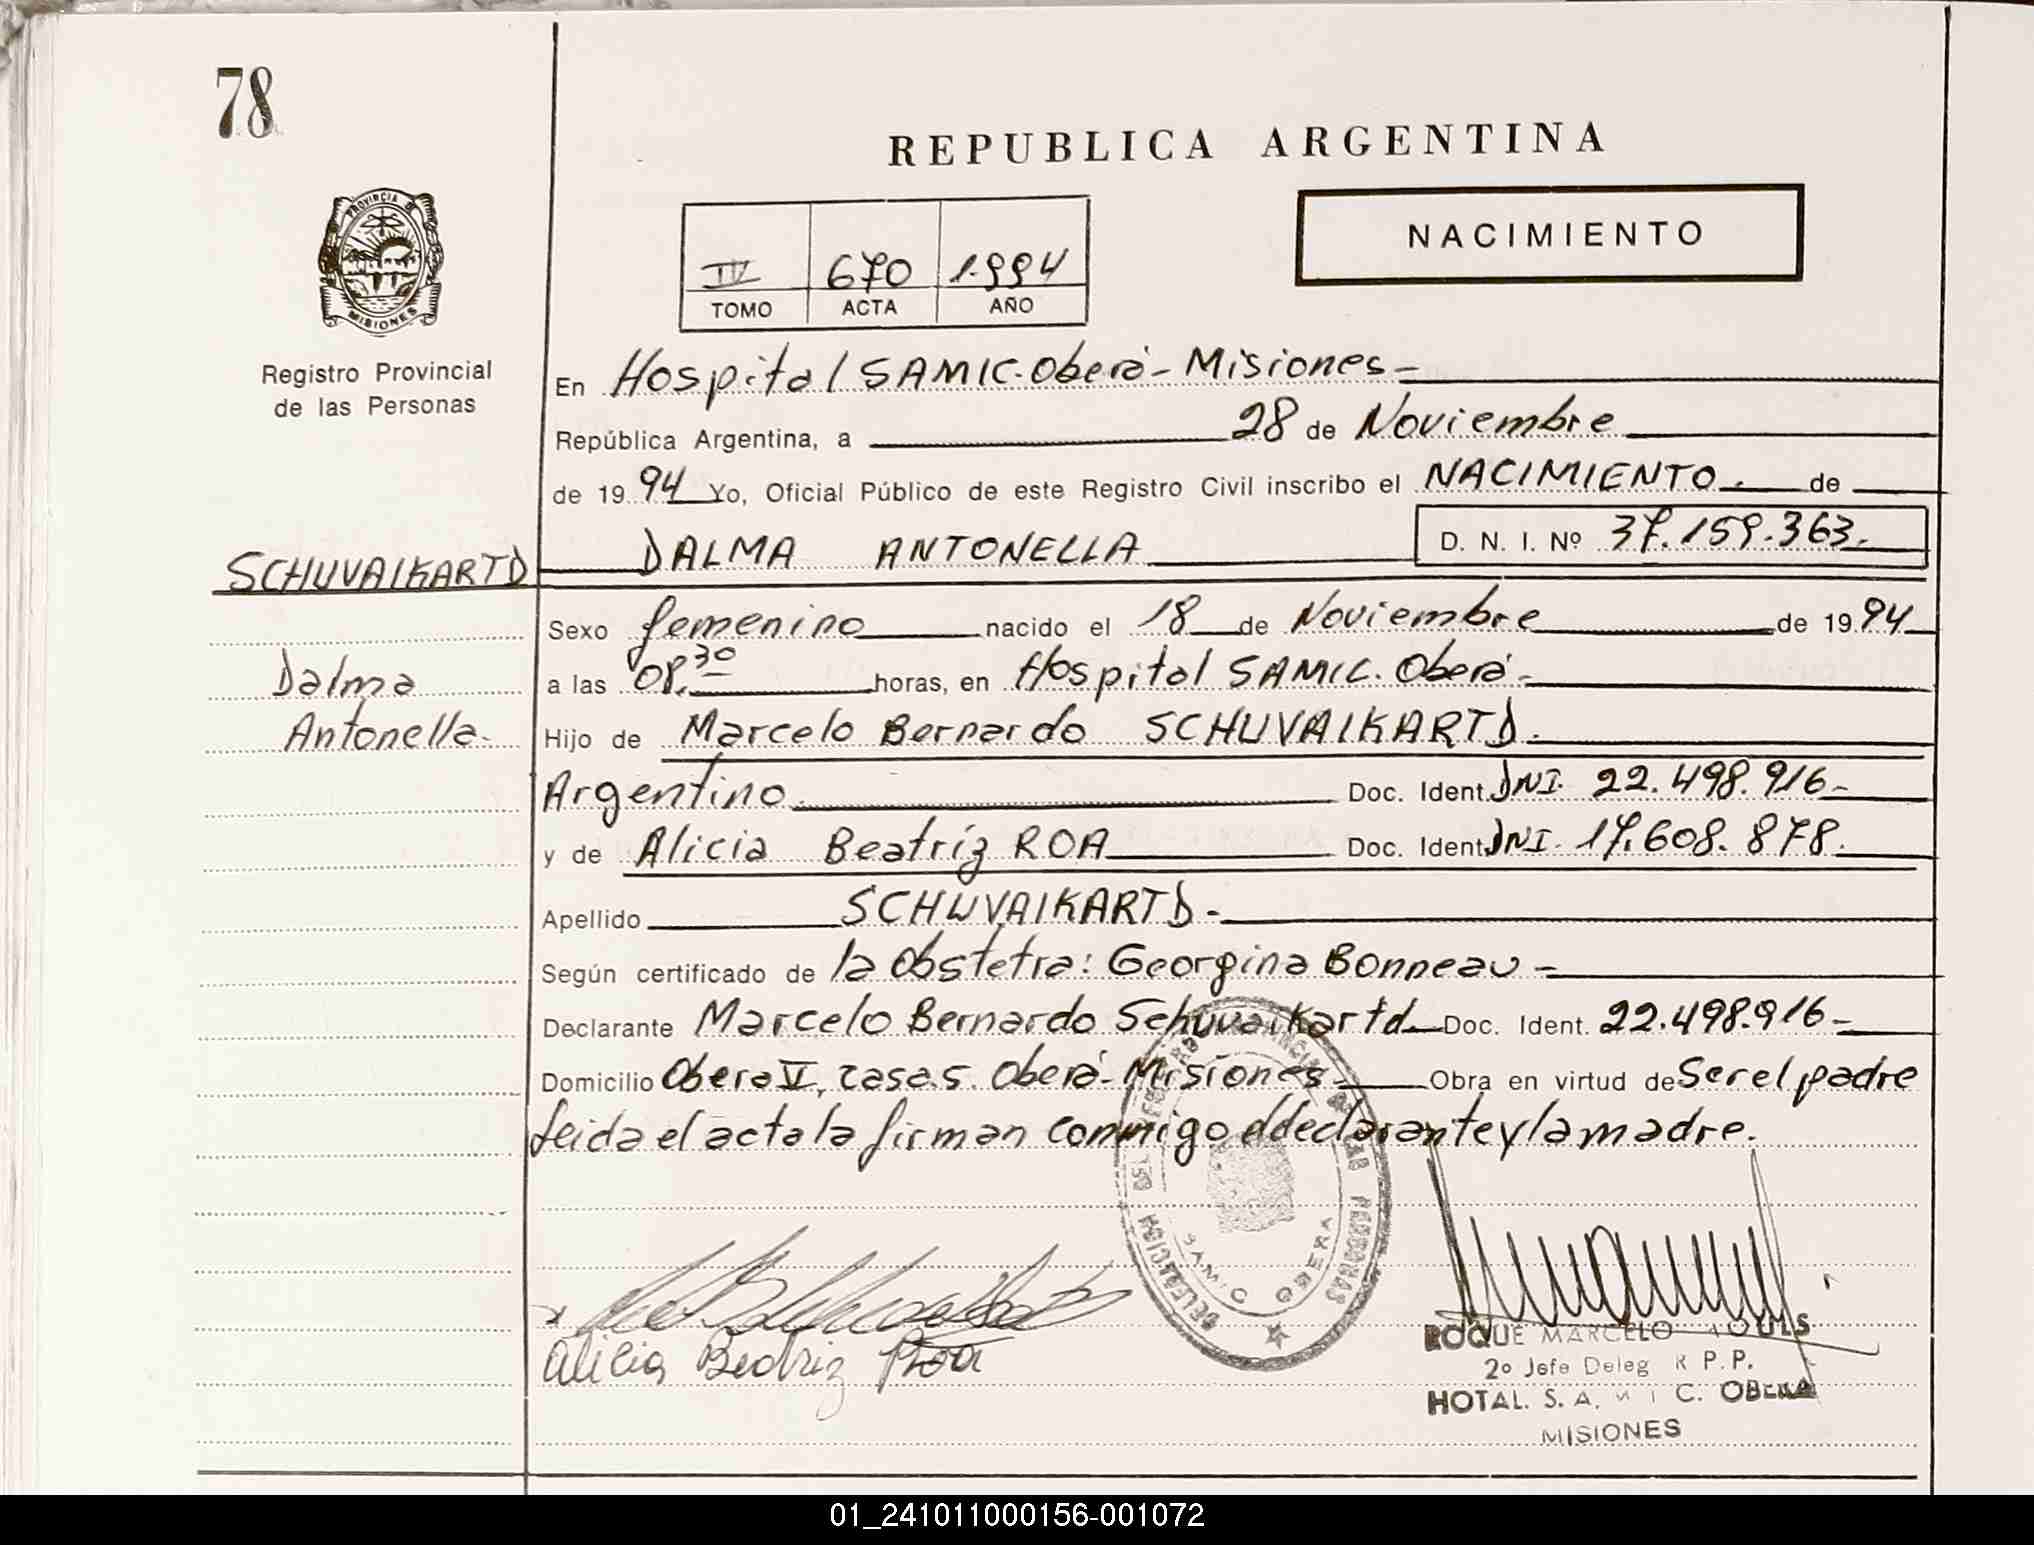 78
REPUBLICA ARGENTINA
NACIMIENTO
IV 670 1.994
TOMO ACTA AÑO
PROVINCIA DE
MISIONES
Registro Provincial
de las Personas
En Hospital SAMIC. Oberá - Misiones -
República Argentina, a 28 de Noviembre
de 1994 Yo, Oficial Público de este Registro Civil inscribo el NACIMIENTO. de
SCHUVAIKARTD DALMA ANTONELLA D. N. I. Nº 37.159.363.
Sexo femenino nacido el 18 de Noviembre de 1994
Dalma
a las 08.30 horas, en Hospital SAMIC. Oberá -
Antonella.
Hijo de Marcelo Bernardo SCHUVAIKARTD.
Argentino. Doc. Ident. DNI. 22.498.916-
y de Alicia Beatríz ROA Doc. Ident. DNI. 17.608.878.
Apellido SCHUVAIKARTD -
Según certificado de la Obstetra: Georgina Bonneau -
Declarante Marcelo Bernardo Schuvaikartd Doc. Ident. 22.498.916-
Domicilio Obera V, casas. Oberá - Misiones - Obra en virtud de Ser el padre
leida el acta la firman conmigo el declarante y la madre.
SAMIC OBERA
Alicia Beatriz Roa
ROQUE MARCELO
2º Jefe Deleg R P.P.
HOTAL. S. A. M I C. OBERA
MISIONES
01_241011000156-001072